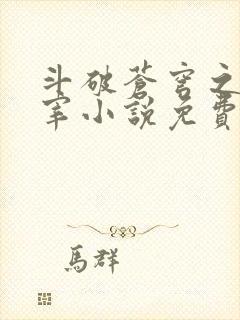 斗破蒼穹之
宰小說免費
馬群